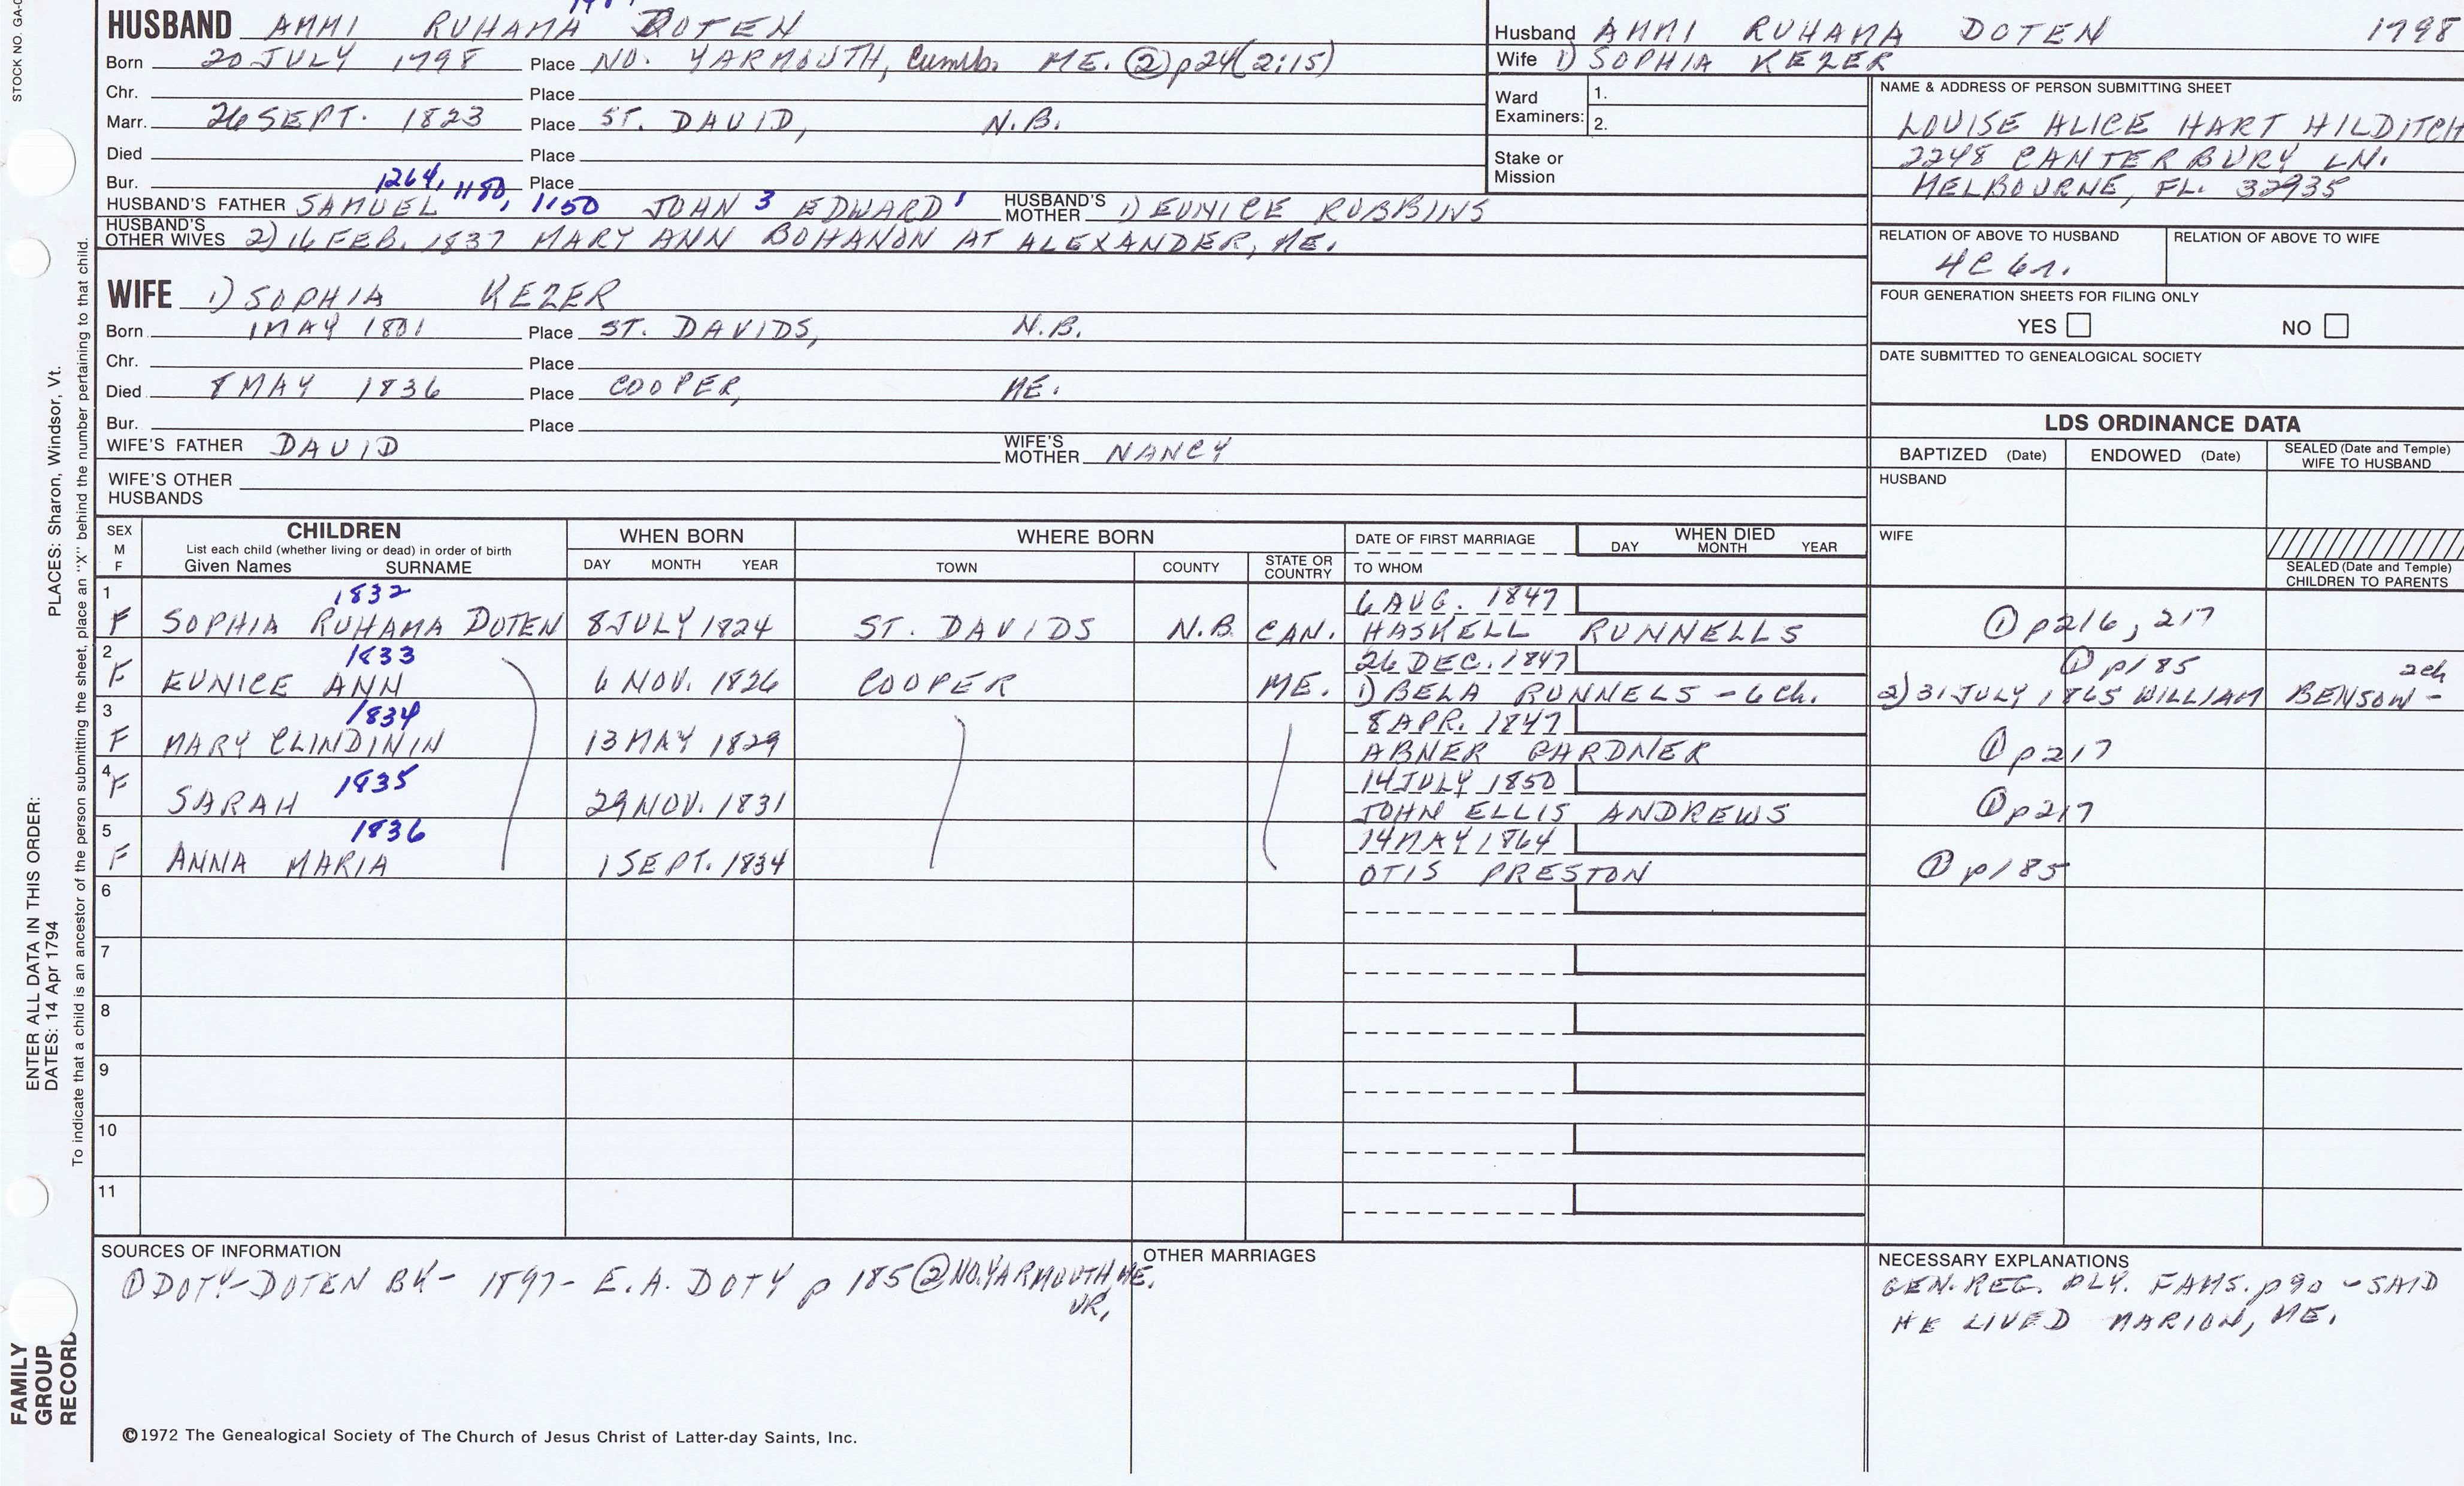 STOCK NO. GA-
HUSBAND AMMI RUHAMA DOTEN
Born 20 JULY 1798 Place NO. YARMOUTH, Cumb. ME. ② p24(2:15)
Chr. Place
Marr. 26 SEPT. 1823 Place ST. DAVID, N.B.
Died Place
Bur. Place
1264, 1180, 1150
HUSBAND'S FATHER SAMUEL JOHN 3 EDWARD 1 HUSBAND'S MOTHER 1) EUNICE ROBBINS
HUSBAND'S OTHER WIVES 2) 16 FEB. 1837 MARY ANN BOHANON AT ALEXANDER, ME.
WIFE 1) SOPHIA KEZER
Born 1 MAY 1801 Place ST. DAVIDS, N.B.
Chr. Place
Died 8 MAY 1836 Place COOPER, ME.
Bur. Place
WIFE'S FATHER DAVID WIFE'S MOTHER NANCY
WIFE'S OTHER HUSBANDS
Husband AMMI RUHAMA DOTEN 1798
Wife 1) SOPHIA KEZER
Ward Examiners: 1.
2.
Stake or Mission
NAME & ADDRESS OF PERSON SUBMITTING SHEET
LOUISE ALICE HART HILDITCH
2248 CANTERBURY LN.
MELBOURNE, FL. 32935
RELATION OF ABOVE TO HUSBAND RELATION OF ABOVE TO WIFE
4C 6r.
FOUR GENERATION SHEETS FOR FILING ONLY
YES NO
DATE SUBMITTED TO GENEALOGICAL SOCIETY
LDS ORDINANCE DATA
BAPTIZED (Date) ENDOWED (Date) SEALED (Date and Temple) WIFE TO HUSBAND
HUSBAND
WIFE
SEALED (Date and Temple) CHILDREN TO PARENTS
SEX M F CHILDREN WHEN BORN WHERE BORN DATE OF FIRST MARRIAGE WHEN DIED
List each child (whether living or dead) in order of birth
Given Names SURNAME DAY MONTH YEAR TOWN COUNTY STATE OR COUNTRY TO WHOM DAY MONTH YEAR
1 1832 6 AUG. 1847
F SOPHIA RUHAMA DOTEN 8 JULY 1824 ST. DAVIDS N.B. CAN. HASKELL RUNNELLS ① p216, 217
2 1833 26 DEC. 1847 ① p185 2ch
F EUNICE ANN 6 NOV. 1826 COOPER ME. 1) BELA RUNNELS - 6 ch. 2) 31 JULY 1865 WILLIAM BENSON -
3 1834 8 APR. 1847
F MARY CLINDININ 13 MAY 1829 ABNER GARDNER ① p217
4 1835 14 JULY 1850
F SARAH 29 NOV. 1831 JOHN ELLIS ANDREWS ① p217
5 1836 14 MAY 1864
F ANNA MARIA 1 SEPT. 1834 OTIS PRESTON ① p185
6
7
8
9
10
11
SOURCES OF INFORMATION
① DOTY-DOTEN BK - 1897 - E. A. DOTY p 185 ② NO. YARMOUTH, ME.
VR,
OTHER MARRIAGES
NECESSARY EXPLANATIONS
GEN. REG. PLY. FAMS. p90 - SAID
HE LIVED MARION, ME.
©1972 The Genealogical Society of The Church of Jesus Christ of Latter-day Saints, Inc.
ENTER ALL DATA IN THIS ORDER:
DATES: 14 Apr 1794 PLACES: Sharon, Windsor, Vt.
To indicate that a child is an ancestor of the person submitting the sheet, place an "X" behind the number pertaining to that child.
FAMILY
GROUP
RECORD